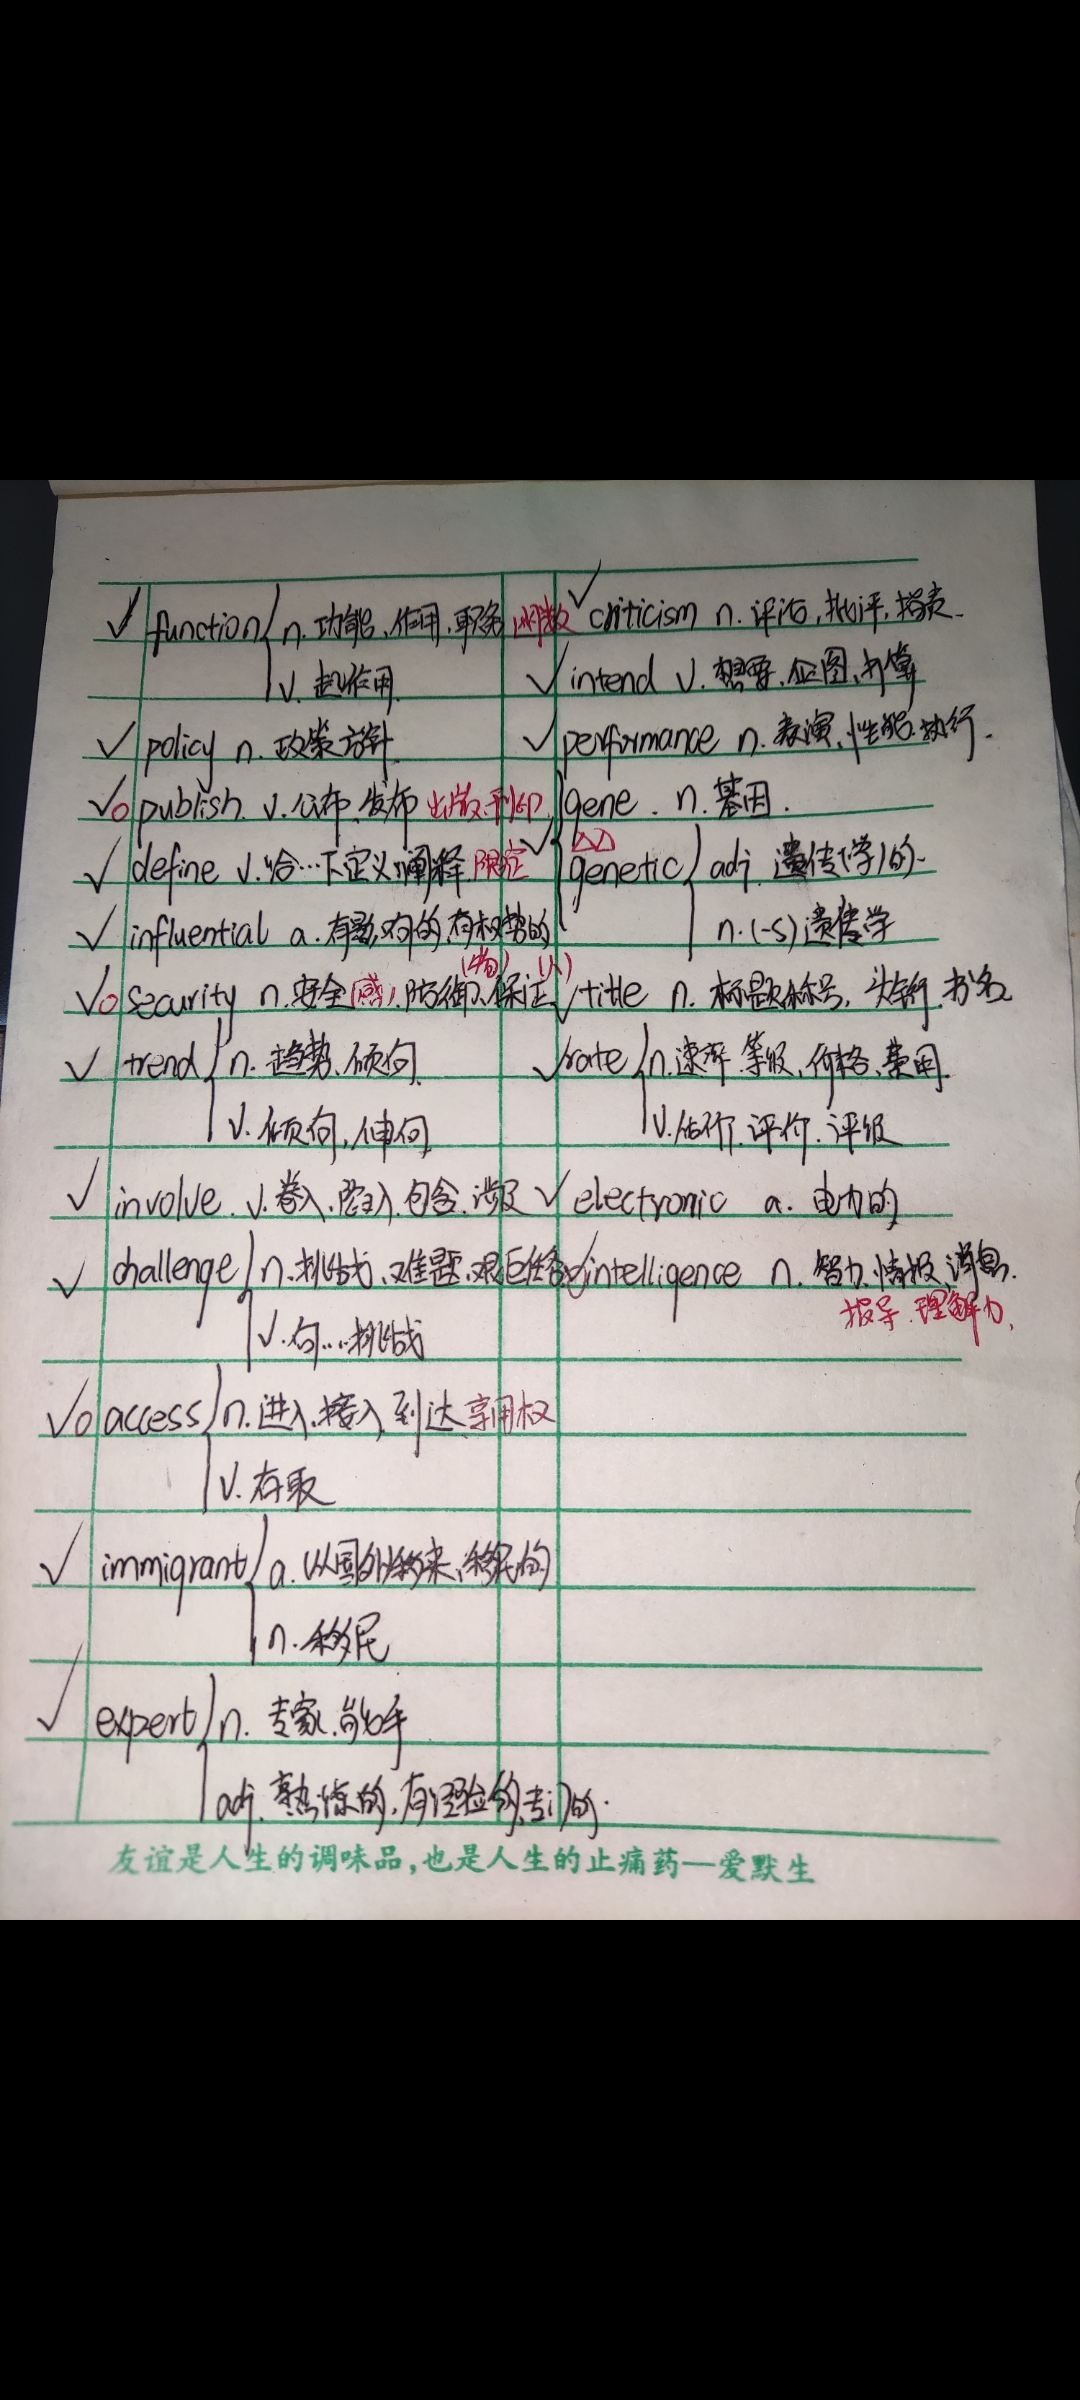 function n. 功能、作用、职务 函数
v. 起作用
policy n. 政策 方针
publish. v. 公布、发布 出版、刊印
define v. 给…下定义、阐释 限定
influential a. 有影响的、有权势的
(物) (人)
security n. 安全(感)、防御、保证
trend n. 趋势、倾向
v. 倾向, 伸向
involve. v. 卷入、陷入、包含、涉及
challenge n. 挑战、难题、艰巨任务
v. 向…挑战
access n. 进入、接入、到达、享用权
v. 存取
immigrant a. 从国外移来、移民的
n. 移民
expert n. 专家、能手
adj. 熟练的、有经验的、专门的.
criticism n. 评论, 批评, 指责
intend v. 想要、企图、打算
performance n. 表演、性能、执行.
gene. n. 基因.
genetic adj. 遗传(学)的
n. (-s) 遗传学
title n. 标题、称号, 头衔、书名
rate n. 速率、等级、价格、费用.
v. 估价、评价、评级
electronic a. 电力的
intelligence n. 智力、情报、消息.
报导、理解力,
友谊是人生的调味品,也是人生的止痛药—爱默生